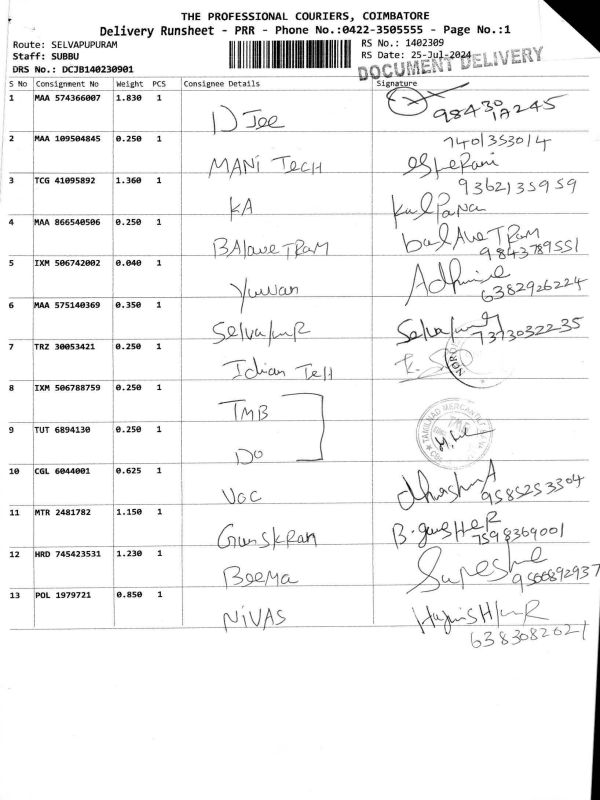 THE PROFESSIONAL COURIERS, COIMBATORE
Delivery Runsheet - PRR - Phone No.:0422-3505555 - Page No.:1
Route: SELVAPUPURAM RS No.: 1402309
Staff: SUBBU RS Date: 25-Jul-2024
DRS No.: DCJB140230901 DOCUMENT DELIVERY
S No Consignment No Weight PCS Consignee Details Signature
1 MAA 574366007 1.830 1 D Jee
2 MAA 109504845 0.250 1 MANI TecH 7401353014
3 TCG 41095892 1.360 1 KA KalPana 9362135959
4 MAA 866540506 0.250 1 balAveTRam 9843789551
5 IXM 506742002 0.040 1 Yuwan 6382926224
6 MAA 575140369 0.350 1 7373032235
7 TRZ 30053421 0.250 1 Idian TeH
8 IXM 506788759 0.250 1 TMB
9 TUT 6894130 0.250 1 DO
10 CGL 6044001 0.625 1 VOC 9585253304
11 MTR 2481782 1.150 1 7598369001
12 HRD 745423531 1.230 1 Beema 9566892937
13 POL 1979721 0.850 1 NIVAS 6383082021